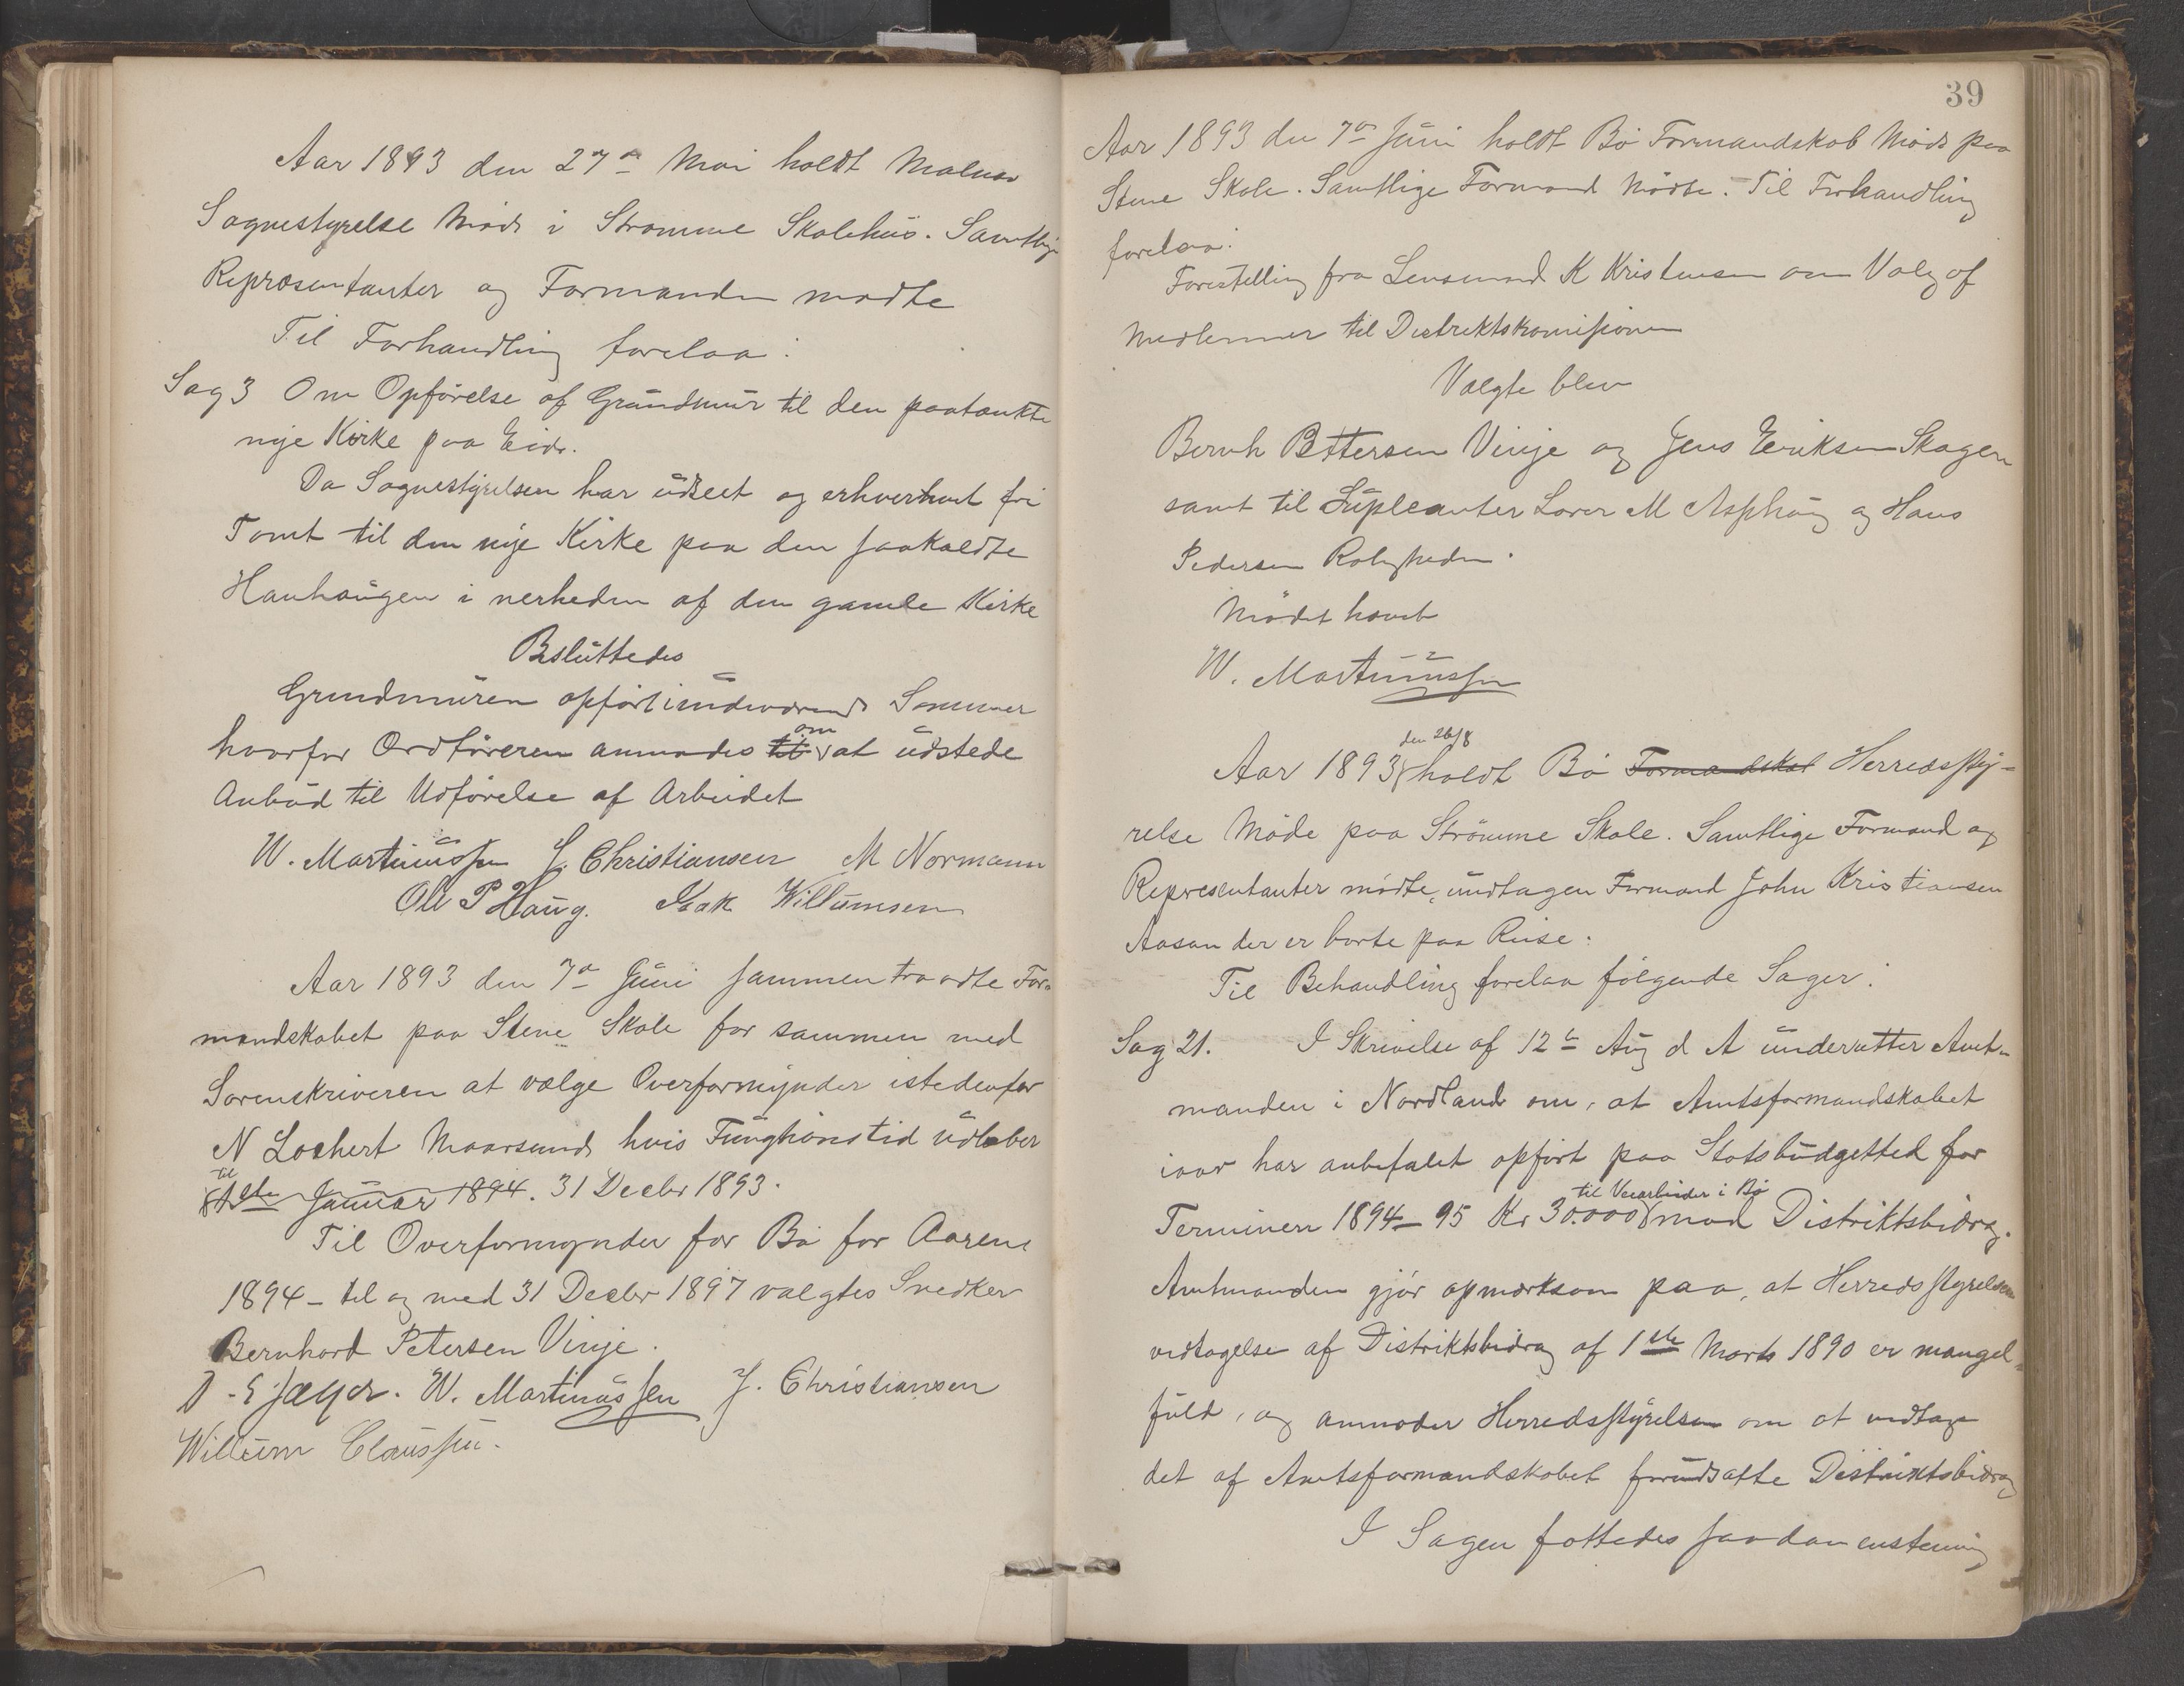 Aar 1893 den 27de Mai holdt Malnes
Sognestyrelse Møde i Strømme Skolehus. Samtlige
Repræsentanter og Formænden mødte
Til Forhandling forelaa:
Sag 3 Om Opførelse af Grundmur til den paatænkte
nye Kirke paa Eide.
Da Sognestyrelsen har udseet og erhvervet fri
Tomt til den nye Kirke paa den saakaldte
Hauhaugen i nerheden af den gamle Kirke
Besluttedes
Grundmuren opført indeværende Sommer
hvorfor Ordføreren anmodes til om at udstede
Anbud til Udførelse af Arbeidet
W. Martinussen J. Christiansen M Normann
Ole P Haug. Isak Willumsen
Aar 1893 den 7de Juni sammentraadte For-
mandskabet paa Steine Skole for sammen med
Sorenskriveren at vælge Overformynder istedenfor
N Lochert Maarsund, hvis Funghionstid udløber
til
1ste Januar 1894. 31 Decbr 1893.
Til Overformynder for Bø for Aarene
1894 - til og med 31 Decbr 1897 valgtes Snedker
Bernhard Petersen Vinje.
Jæger. W. Martinussen J. Christiansen
Willum Claussen.
39
Aar 1893 den 7de Juni holdt Bø Formandskab Møde paa
Stene Skole. Samtlige Formænd Mødte. Til Forhandling
forelaa:
Forestelling fra Lensmand K Kristensen om Valg af
Medlemmer til Distriktskomisionen
Valgte blev
Bernh Pettersen Vinje og Jens Eriksen Skagen
samt til Supleanter Lærer M Asphaug og Hans
Pedersen Roligheden.
Mødet hævet
W. Martinussen
den 26/8
Aar 1893 holdt Bø Formandskab Herredssty-
relse Møde paa Strømme Skole. Samtlige Formænd og
Representanter mødte, undtagen Formand John Kristiansen
Aasan der er borte paa Reise.
Til Behandling forelaa følgende Sager:
Sag 21. I Skrivelse af 12te Aug d A underretter Amt-
manden i Nordland om, at Amtsformandskabet
iaar har anbefalet opført paa Statsbudgetted for
til Veiarbeider i Bø
Terminen 1894-95 Kr 30.000 mod Distriktsbidrag.
Amtmanden gjør opmerksom paa, at Herredsstyrelsens
vedtagelse af Distriktsbidrag af 1ste Marts 1890 er mangel-
fuld, og anmoder Herredsstyrelsen om at vedtage
det af Amtsformandskabet forudsatte Distriktsbidrag
I Sagen fattedes saadan enstemig